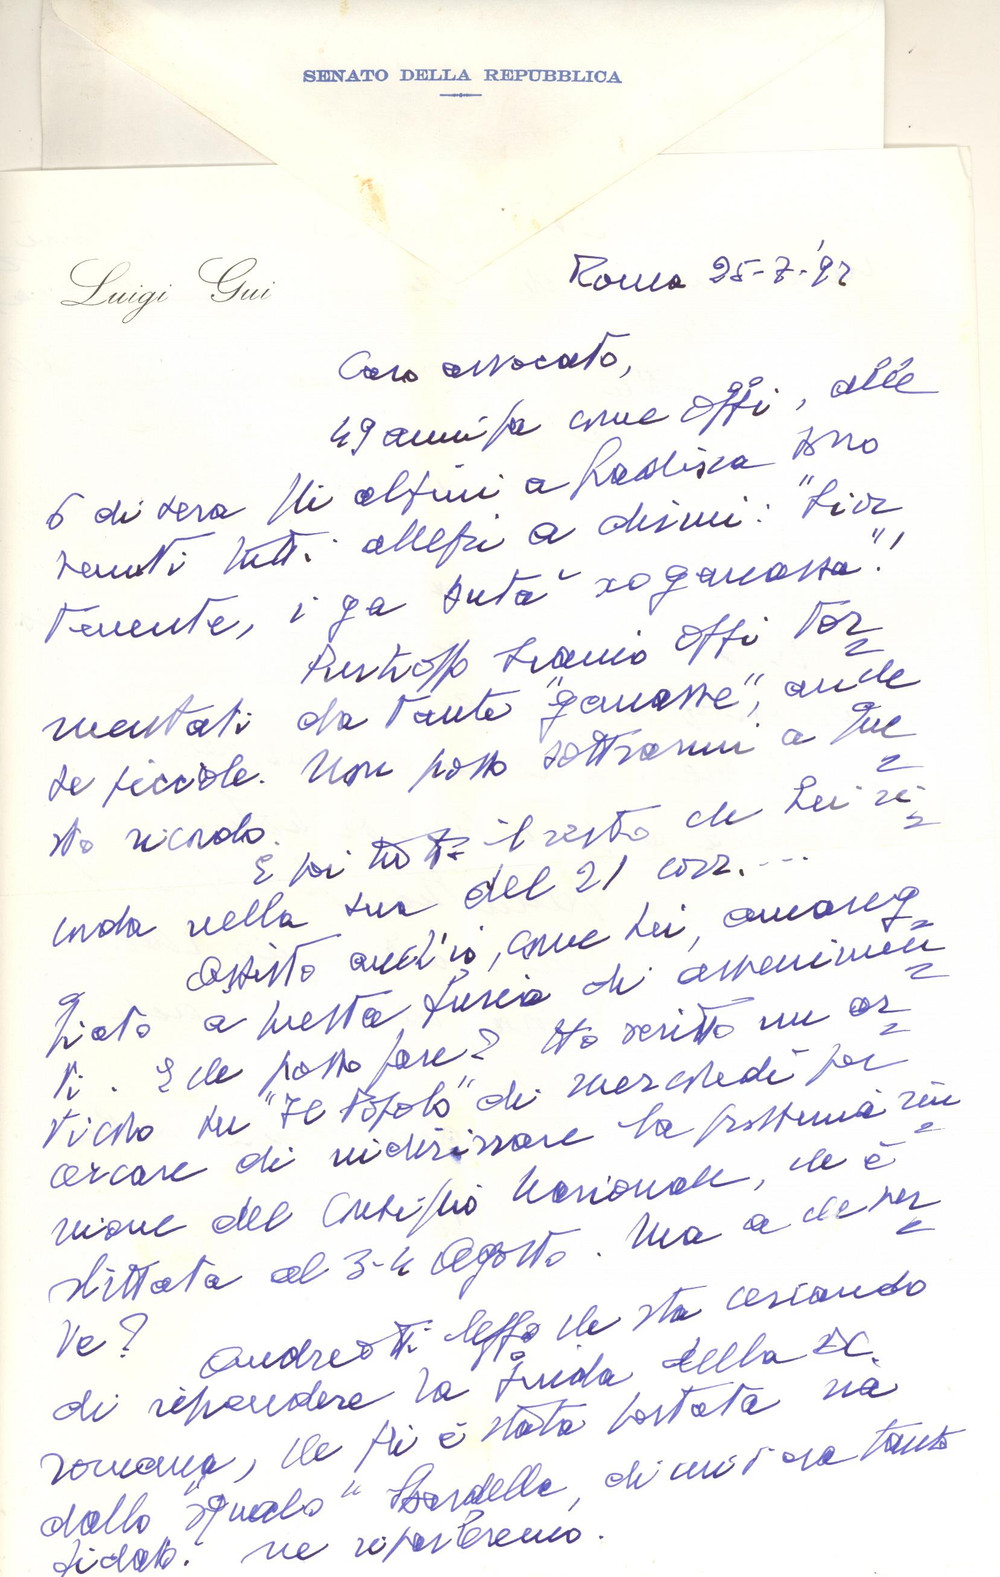 SENATO DELLA REPUBBLICA
Luigi Gui
Roma 25-7-'92
Caro avvocato,
49 anni fa come oggi, alle
6 di sera gli alpini a Gradisca sono
venuti tutti allegri a dirmi: "Sior
tenente, i ga butà xo ganassa"!
Purtroppo siamo oggi tor=
mentati da tante "ganasse", anche
se piccole. Non posso sottrarmi a que=
sto ricordo.
E poi tutto il resto che Lei ri=
corda nella sua del 21 corr....
Assisto anch'io, come Lei, amareg=
giato a questa furia di avvenimen=
ti. E che posso fare? Ho scritto un ar=
ticolo su "Il Popolo" di mercoledì per
cercare di indirizzare la prossima riu=
nione del Consiglio Nazionale, che è
slittata al 3-4 Agosto. Ma a che ser=
ve?
Andreotti leggo che sta cercando
di riprendere la guida della DC.
romana, che gli è stata portata via
dallo "squalo" Sbardella, di cui s'era tanto
fidato. Ne riparleremo.